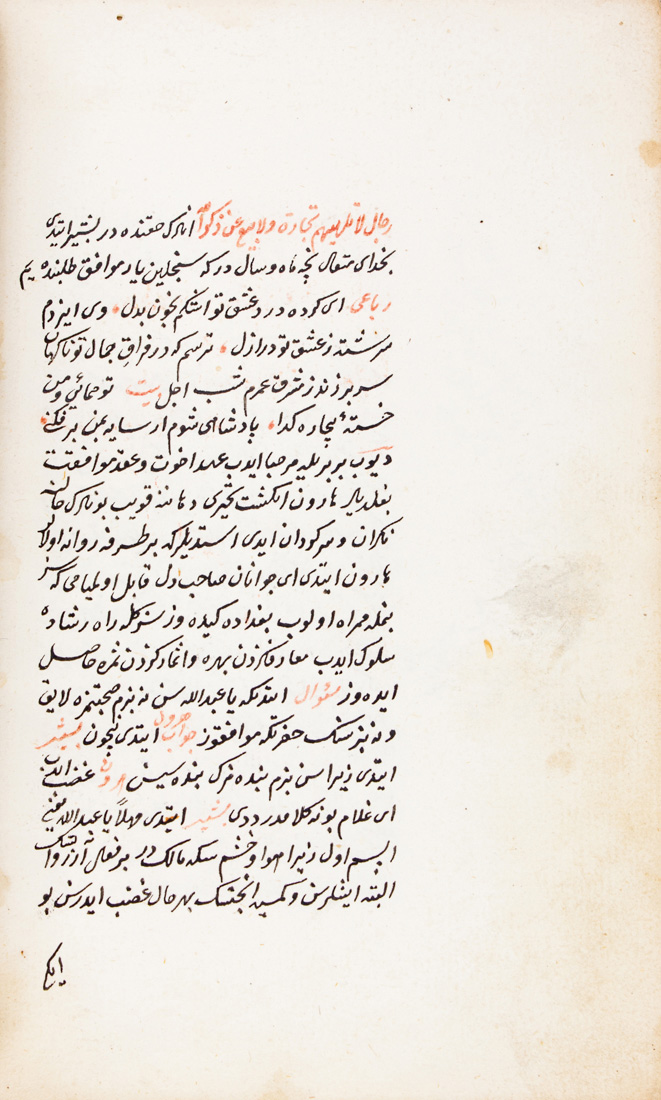 رجال لا تلهيهم تجارة ولا بيع عن ذكر الله انلرك حقنده در بشير ايتدى
بخداى متعال نچه ماه و سال در كه سنجلين يار موافق طلبنده يم
رباعى اى كرده درد عشق تو اشكم بخون بدل وى ايزدم
سرشته ز عشق تو در ازل ترسم كه در فراق جمال تو ناكهان
سر بر زند ز مشرق عمرم شب اجل بيت تو همائي و من
خستۀ بيچاره كدا پادشاهى شوم ار سايه بمن بر فكنى
ديوب بر بريله مرحبا ايدب عهد اخوت و عقد موافقت
بغلديلر هارون انكشت تحيرى دهاننه قويب بونلرك حالنه
نكران و سركردان ايدى استديلر كه بر طرفه روانه اولالر
هارون ايتدى اى جوانان صاحب دل قابل اولميا مى كه سز
بنمله همراه اولوب بغداده كيده وز سزكله راه رشاده
سلوك ايدب معارفكزدن بهره و انفاسكزدن ثمره حاصل
ايده وز سؤال ايتديكه يا عبد الله سن نه بزم صحبتمزه لايق
و نه بز سنك حضرتكه موافقوز جواب هرون ايتدى نچون بشير
ايتدى زيرا سن بزم بنده مزك بنده سيسن هرون غضب ايدب
اى غلام بو نه كلامدر ددى بشير ايتدى مهلاً يا عبد الله
ابسم اول زيرا هوا و خشم سكه مالك در بر فعلى آرزو ايتسك
البته ايشلرسن و كمينه انجنسك بهر حال غضب ايدرسن بو
ايكى